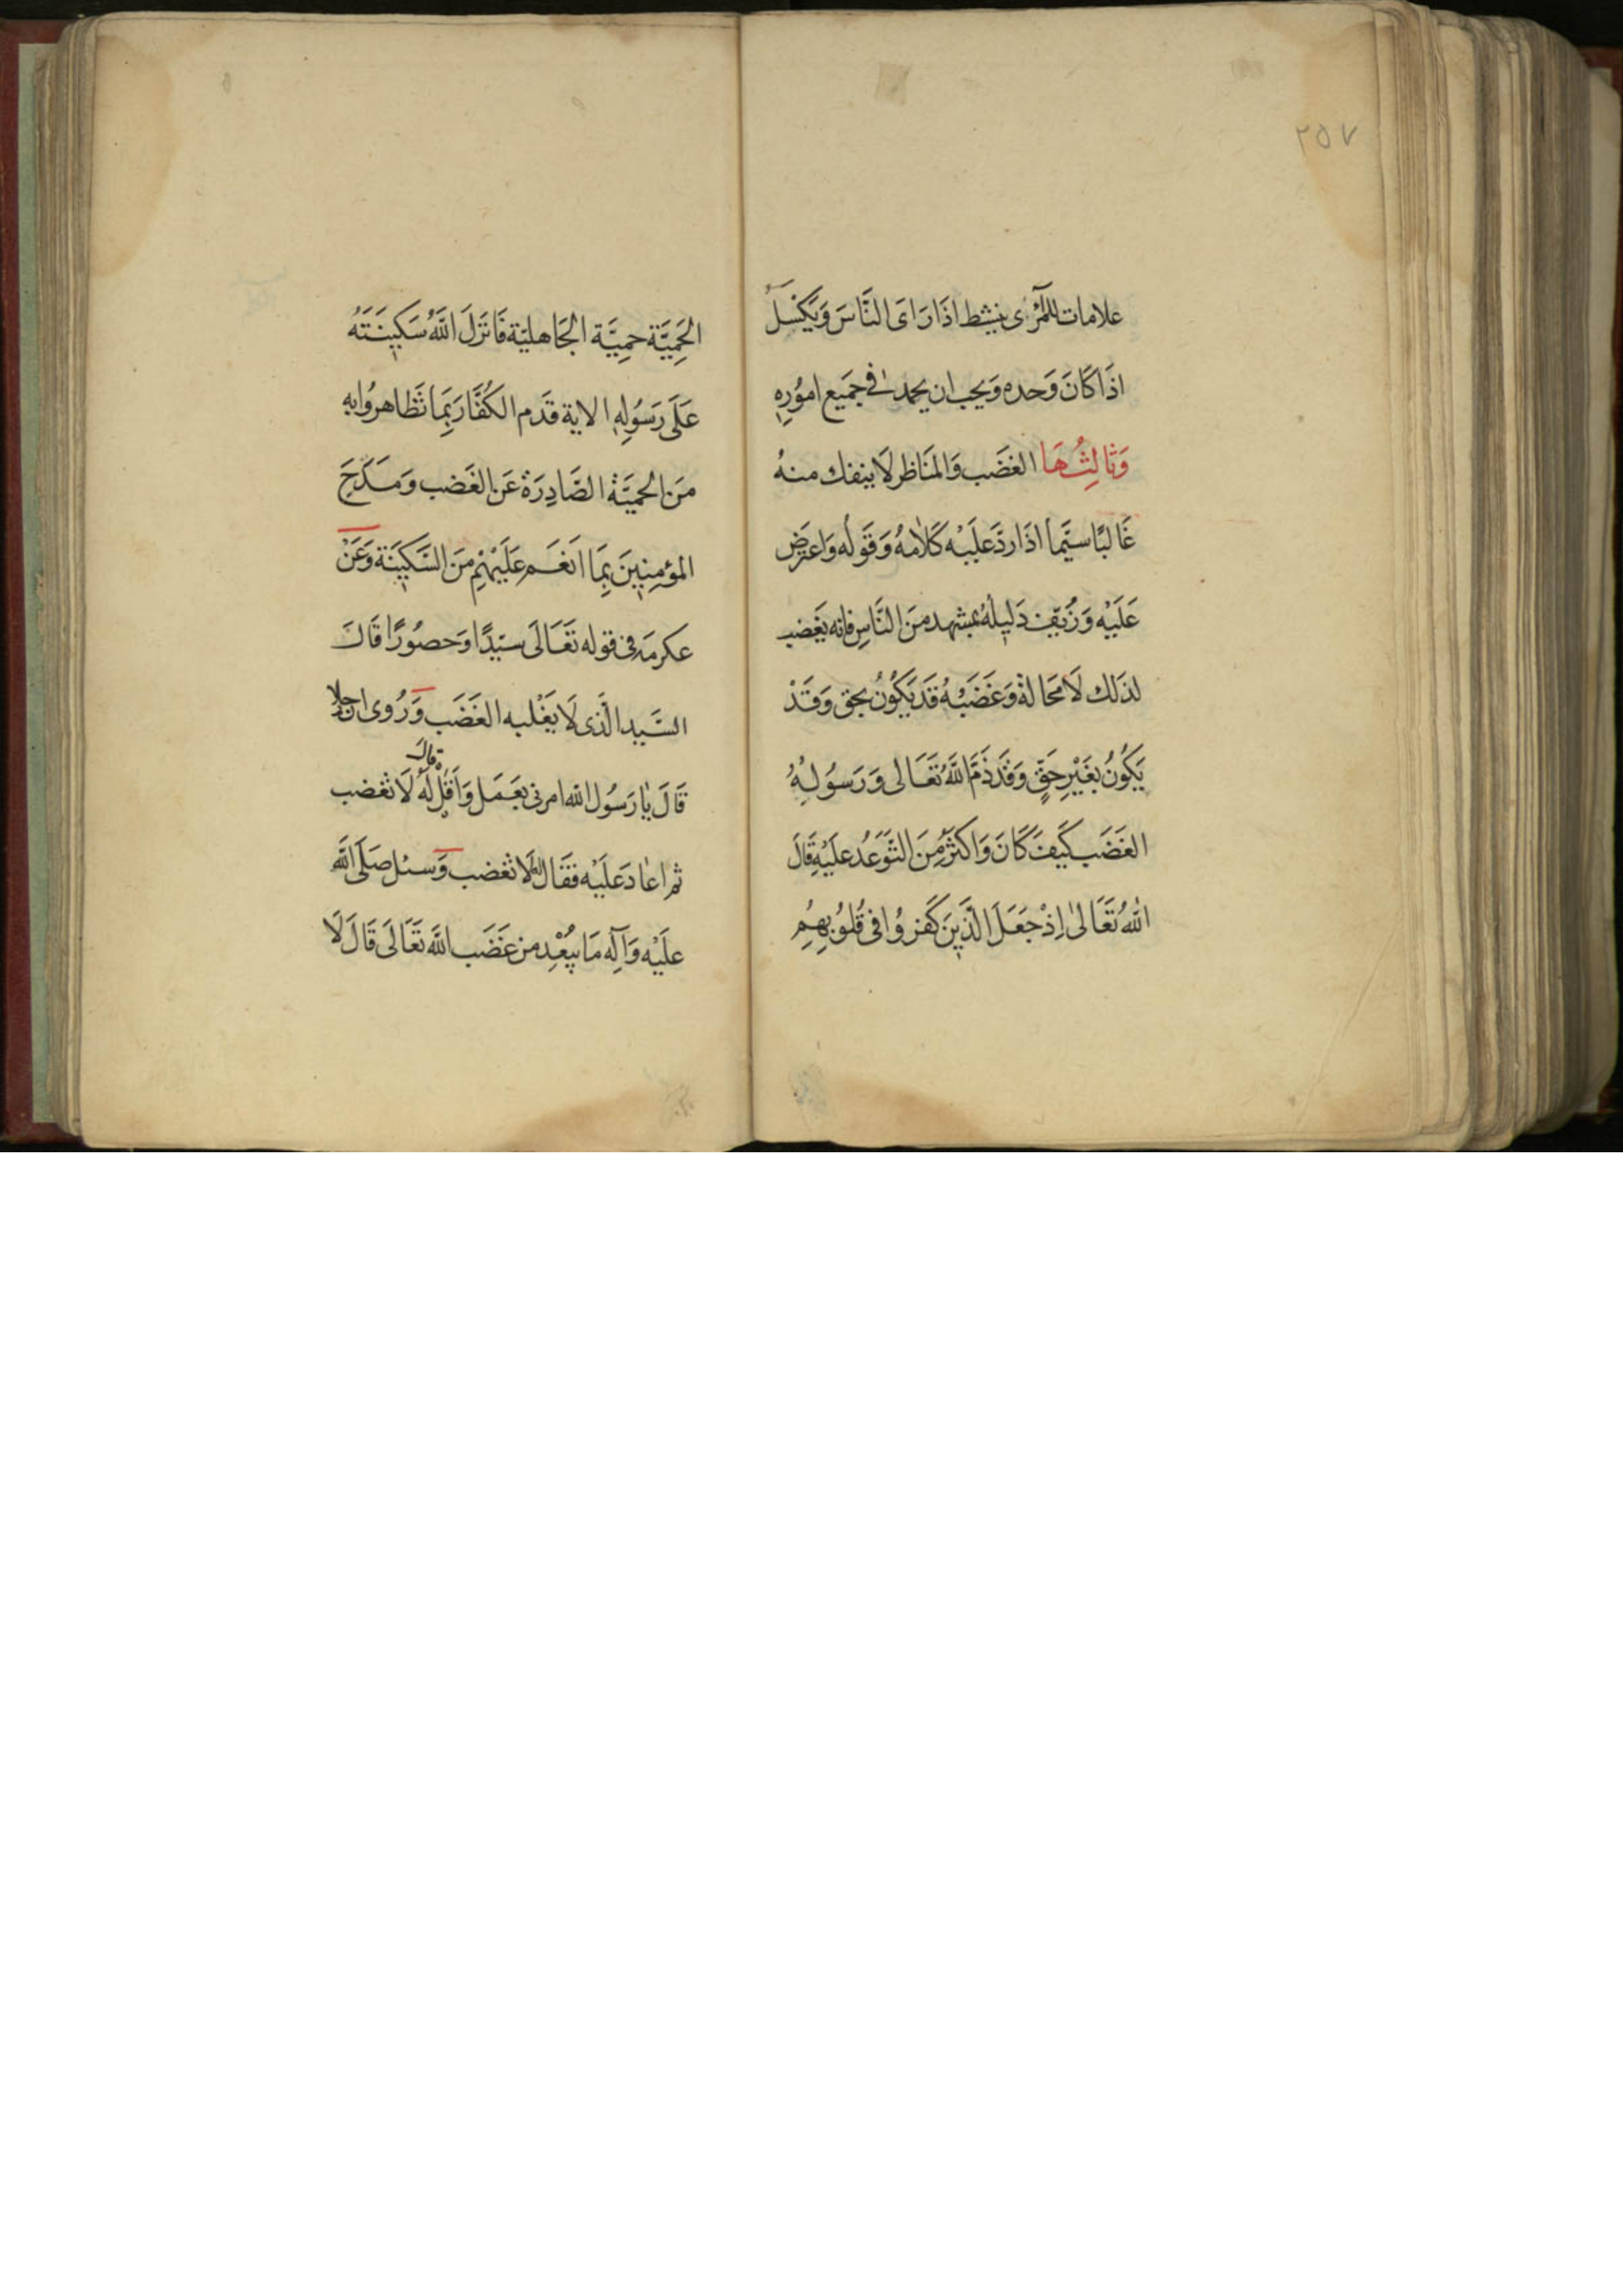 ٢٥٧
علامات للمرئى ينشط اذَا رَاى النَّاسَ وَيَكْسَلُ
اذَا كَانَ وَحده وَيحب ان يحمد فى جَمَيع امُورِهِ
وَثَالِثُهَا الغضَب وَالمَنَاظر لَا ينفك منهُ
غَالبًا سيَّما اذَا ردَّ عَلَيْه كَلَامهُ وَقَولُه وَاعترَض
عَلَيْه وَزُيّف دَليلهُ بمشهد منَ النَّاسِ فانه يَغضب
لذَلك لَا محَالة وَغَضَبُهُ قَد يَكُونُ بحق وَقَدْ
يَكُونُ بغَيْرِ حَقٍّ وَقَد ذَمَّ اللَّهُ تَعَالى وَرَسُولُهُ
الغَضَب كَيفَ كَانَ وَاكثَرَ مِنَ التَّوَعُد عَلَيْهِ قَالَ
اللَّهُ تَعَالىٰ اِذْ جَعَلَ الَّذَينَ كَفَرُوا فى قُلُوبِهِمُ
الحَمِيَّة حمِيَّة الجَاهليّة فَانزلَ اللَّهُ سَكينَتَهُ
عَلَى رَسُولِهِ الاية قَدم الكُفَّار بمَا تظَاهروُا به
منَ الحميَّة الصَّادِرَة عَن الغَضب وَمَدَحَ
المؤمِنِينَ بِمَا انَعَم عَلَيْهِمِ منَ السَّكينَة وَعَنْ
عكرمَه فى قوله تَعَالَى سيّدًا وَحصُورًا قَالَ
السَّيد الَّذى لَا يَغْلبه الغَضَب وَرُوى ان رجلا
قَالَ يٰا رَسُول اللّه امرنى بعَمَل وَاَقِلْ قالَ لَهُ لَا تغضب
ثم اعَادَ عَلَيْه فقَال له لَا تغضب وَسئل صَلَّى اللَّه
عَلَيْه وَآلِه مَا يبُعْدِ من غضَب اللَّه تَعَالَى قَالَ لَا